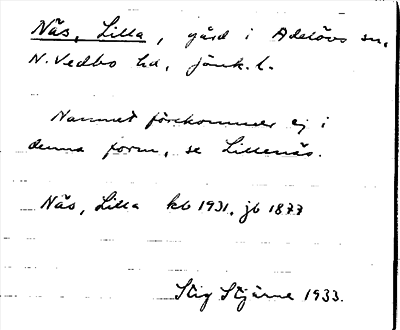 Näs, Lilla, gård i Adelövs sn,
N. Vedbo hd, jönk. l.
Namnet förekommer ej i
denna form, se Lillenäs.
Näs, Lilla kb 1931, jb 1877
Stig Stjärne 1933.